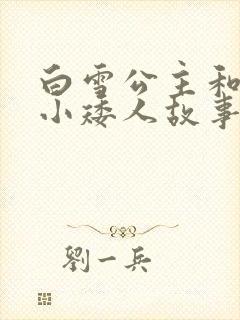 白雪公主和
小矮人故事
劉一兵